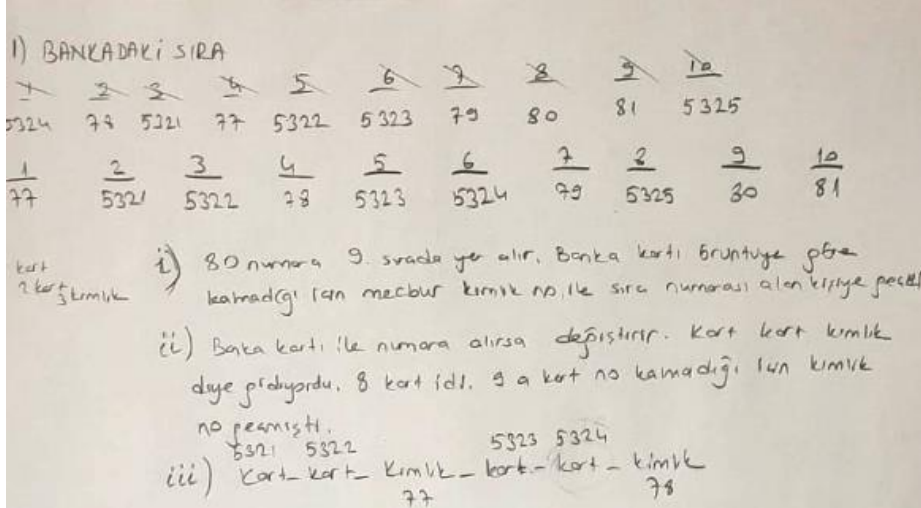 1) BANKADAKİ SIRA
1 2 3 4 5 6 7 8 9 10
5324 78 5321 77 5322 5323 79 80 81 5325
1 2 3 4 5 6 7 8 9 10
77 5321 5322 78 5323 5324 79 5325 80 81
kart
2 kart 3 kimlik
i) 80 numara 9. sırada yer alır. Banka kartı örüntüye göre
kalmadığı için mecbur kimlik no ile sıra numarası alan kişiye
ii) Banka kartı ile numara alırsa değiştirir. Kart kart kimlik
diye gidiyordu. 8 kart idi. 9 a kart no kalmadığı için kimlik
no
5321 5322 5323 5324
iii) Kart- kart- kimlik- kart- kart- kimlik
77 78